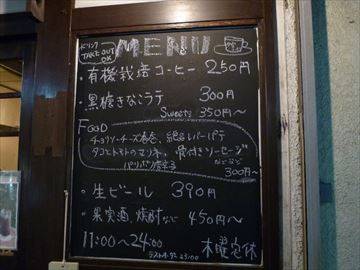 ドリンク TAKE OUT OK
MENU
・有機栽培コーヒー 250円
・黒糖きなこラテ 300円
Sweets 350円〜
FOOD
チョリソーチーズ春巻、絶品レバーパテ
タコとトマトのマリネ、骨付きソーセージ
などなど
300円〜
・生ビール 390円
・果実酒 焼酎など 450円〜
11:00〜24:00 木曜定休
ラストオーダー23:00